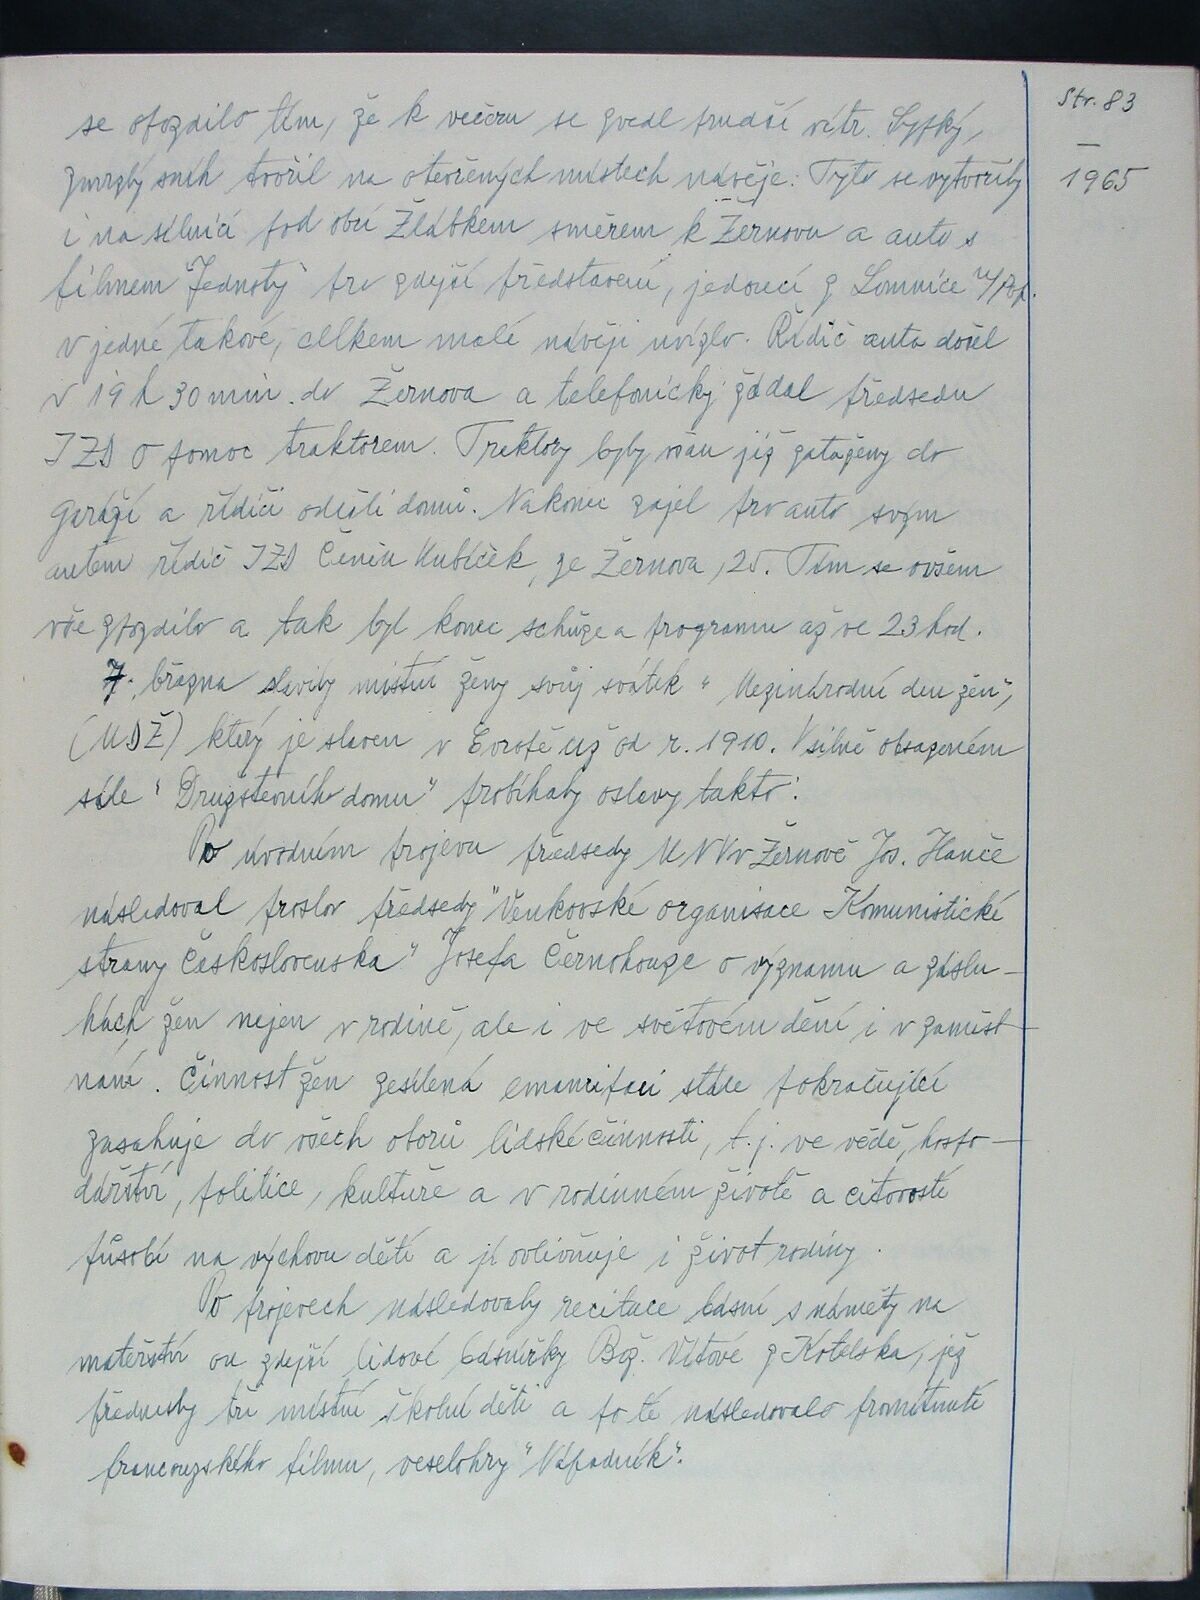 Str. 83
1965
se opozdilo tím, že k večeru se zvedl prudší vítr. Sypký,
zmrzlý sníh tvořil na otevřených místech návěje. Tyto se vytvořily
i na silnici pod obcí Žlábkem směrem k Žernovu a auto s
filmem "Jednoty" pro zdejší představení, jedoucí z Lomnice n/Pop.
v jedné takové, celkem malé návěji uvízlo. Řidič auta došel
v 19 h 30 min. do Žernova a telefonicky žádal předsedu
JZD o pomoc traktorem. Traktory byly však již zataženy do
garáží a řidiči odešli domů. Nakonec zajel pro auto svým
autem řidič JZD Čeněk Kubíček, ze Žernova, 25. Tím se ovšem
vše zpozdilo a tak byl konec schůze a programu až ve 23 hod.
7. března slavily místní ženy svůj svátek "Mezinárodní den žen",
(MDŽ) který je slaven v Evropě už od r. 1910. V silně obsazeném
sále "Družstevního domu" probíhaly oslavy takto:
Po úvodním projevu předsedy MNV v Žernově Jos. Hanče
následoval proslov předsedy "Venkovské organisace Komunistické
strany Československa" Josefa Černohouze o významu a záslu-
hách žen nejen v rodině, ale i ve světovém dění i v zaměst-
nání. Činnost žen zesílená emancipací stále pokračující
zasahuje do všech oborů lidské činnosti, t.j. ve vědě, hospo-
dářství, politice, kultuře a v rodinném životě a citovostí
působí na výchovu dětí a jí ovlivňuje i život rodiny.
Po projevech následovaly recitace básní s náměty na
mateřství od zdejší lidové básnířky Bož. Vítové z Kotelska, jež
přednesly tři místní školní děti a po té následovalo promítnutí
francouzského filmu, veselohry "Nápadník".